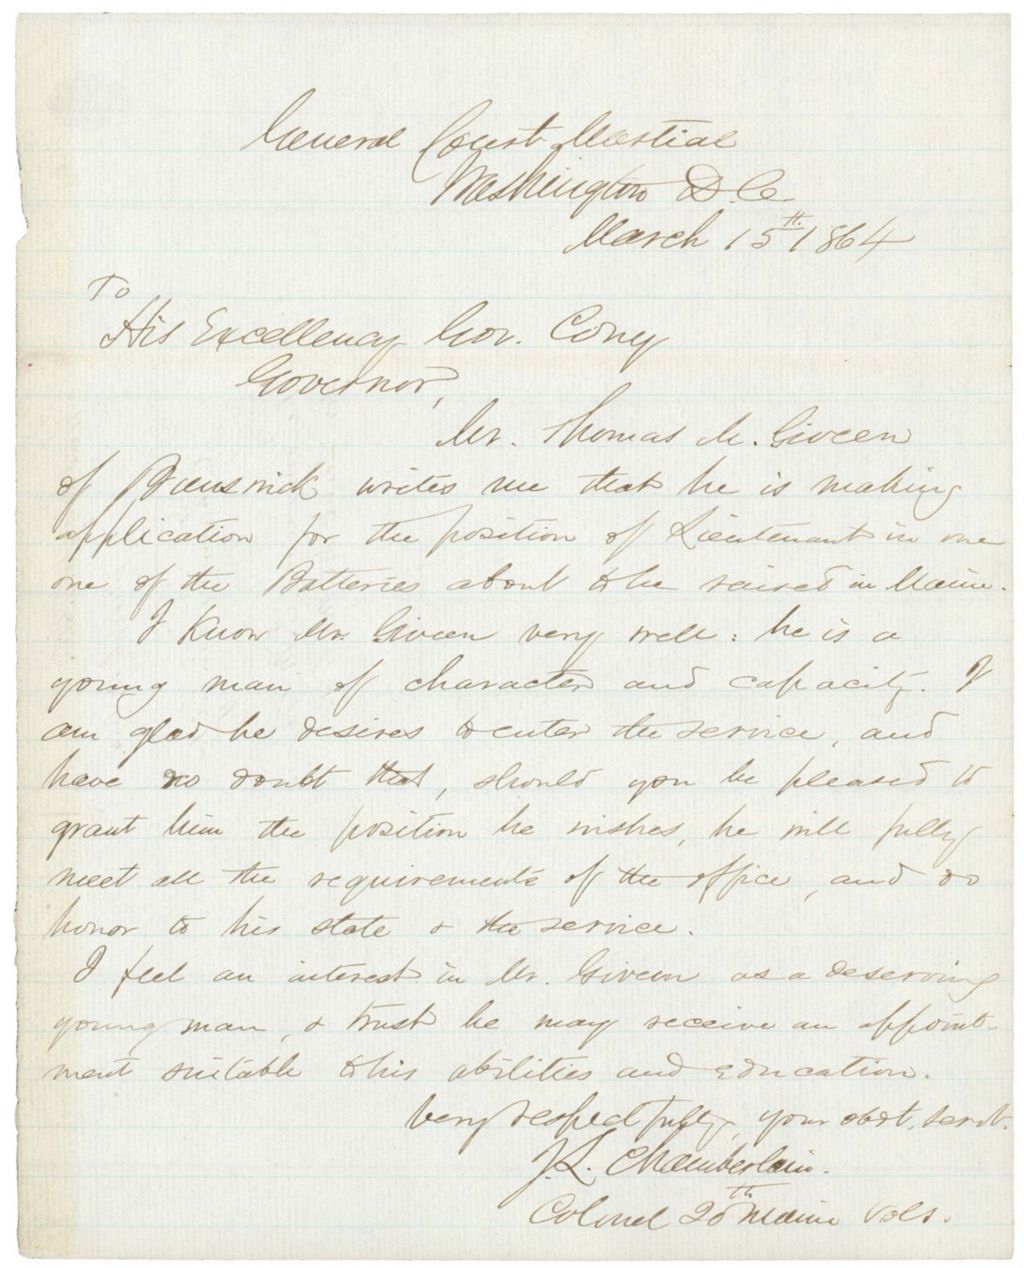 General Court Martial
Washington D.C.
March 15th. 1864
To
His Excellency Gov. Cony
Governor,
Mr. Thomas M. Giveen
of Brunswick writes me that he is making
application for the position of Lieutenant in one
one of the Batteries about to be raised in Maine.
I know Mr. Giveen very well: he is a
young man of character and capacity. I
am glad he desires to enter the service, and
have no doubt that, should you be pleased to
grant him the position he wishes, he will fully
meet all the requirements of the office, and do
honor to his state & the service.
I feel an interest in Mr. Giveen as a deserving
young man, & trust he may receive an appoint-
ment suitable to his abilities and education.
Very respectfully, your obdt. servt.
J. L. Chamberlain.
Colonel 20th Maine Vols.